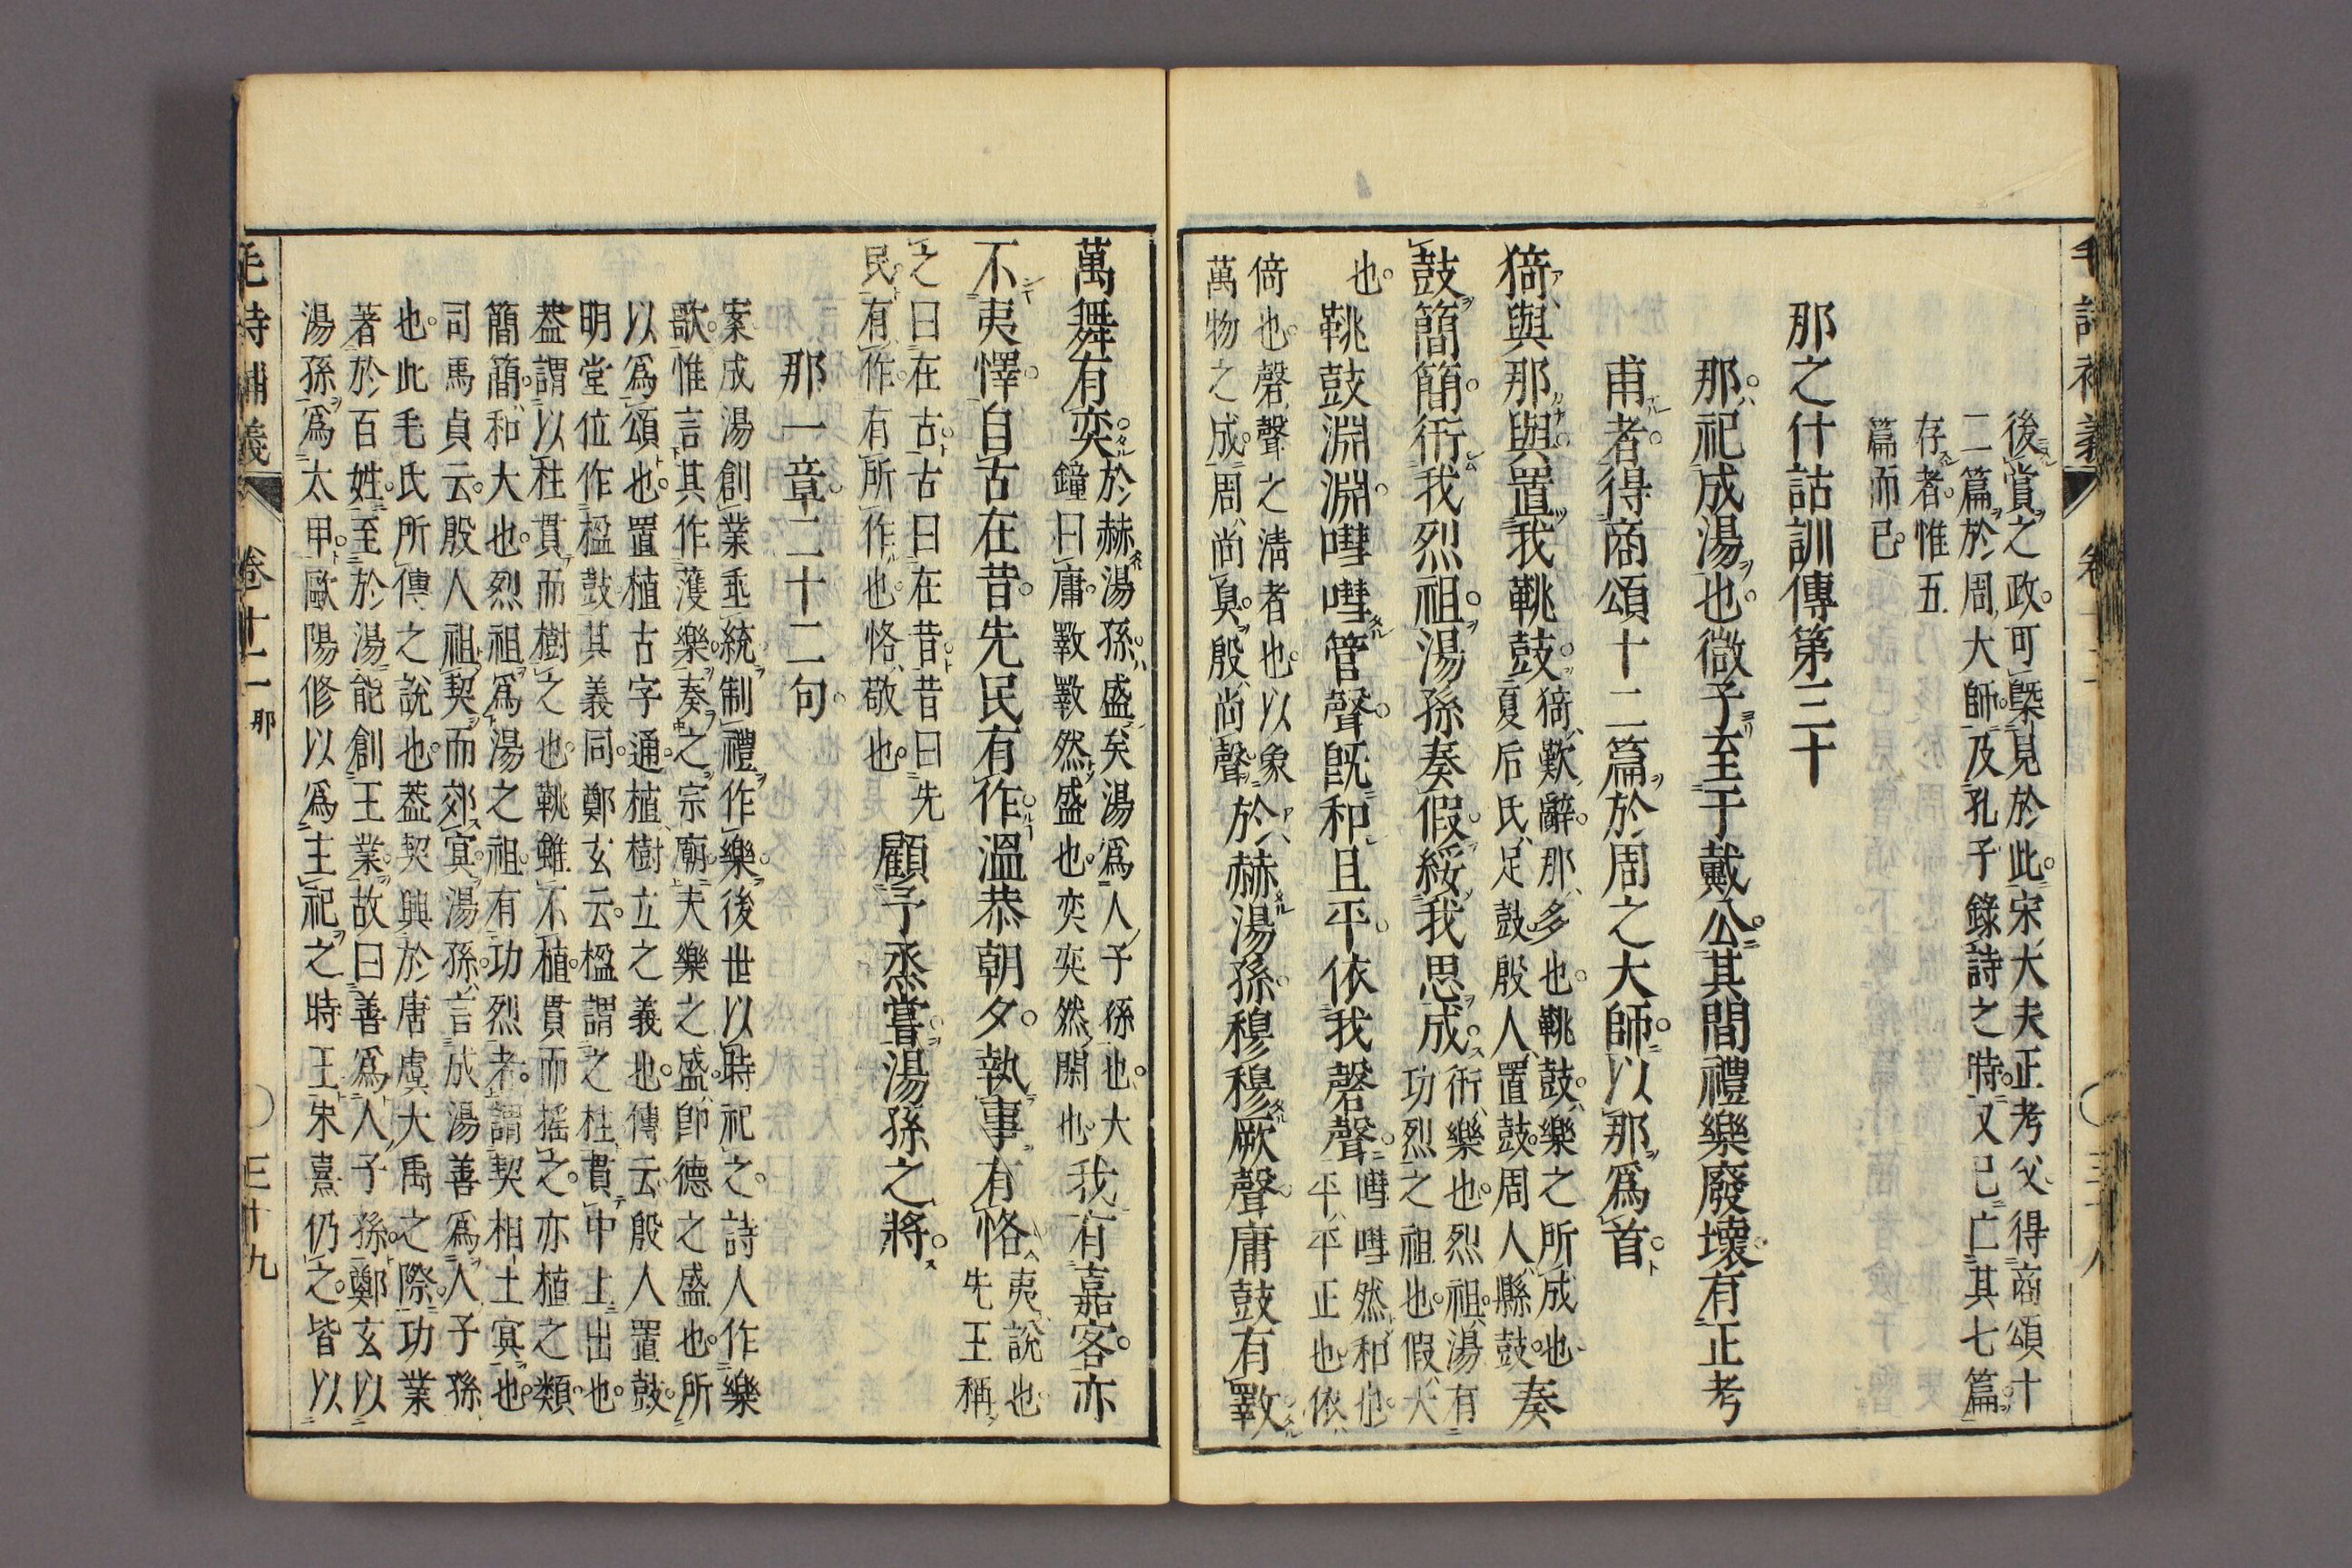 後賞之政可槩見於此宋大夫正考父得商頌十
二篇於周大師及孔子錄詩之時又已亡其七篇
存者惟五
篇而已
那之什詁訓傳第三十
那祀成湯也微子至于戴公其間禮樂廢壞有正考
甫者得商頌十二篇於周之大師以那爲首
猗與那與置我鞉鼓
猗歎辭那多也鞉鼓樂之所成也
夏后氏足鼓殷人置鼓周人縣鼓
奏
鼓簡簡衎我烈祖湯孫奏假綏我思成
衎樂也烈祖湯有
功烈之祖也假大
也
鞉鼓淵淵嘒嘒管聲既和且平依我磬聲
嘒嘒然和也
平平正也依
倚也磬聲之淸者也以象
萬物之成周尚臭殷尚聲
於赫湯孫穆穆厥聲庸鼓有斁
萬舞有奕
於赫湯孫盛矣湯爲人子孫也大
鐘曰庸斁斁然盛也奕奕然閑也
我有嘉客亦
不夷懌自古在昔先民有作溫恭朝夕執事有恪
夷說也
先王稱
之曰在古古曰在昔昔曰先
民有作有所作也恪敬也
顧予烝嘗湯孫之將
那一章二十二句
案成湯創業垂統制禮作樂後世以時祀之詩人作樂
歌惟言其作濩樂奏之宗廟夫樂之盛卽德之盛也所
以爲頌也置植古字通植樹立之義也傳云殷人置鼓
明堂位作楹鼓其義同鄭玄云楹謂之柱貫中上出也
葢謂以柱貫而樹之也鞉雖不植貫而搖之亦植之類
簡簡和大也烈祖爲湯之祖有功烈者謂契相土冥也
司馬貞云殷人祖契而郊冥湯孫言成湯善爲人子孫
也此毛氏所傳之說也葢契興於唐虞大禹之際功業
著於百姓至於湯能創王業故曰善爲人子孫鄭玄以
湯孫爲太甲歐陽修以爲主祀之時王朱熹仍之皆以
毛詩補義
卷十二
那
三十九